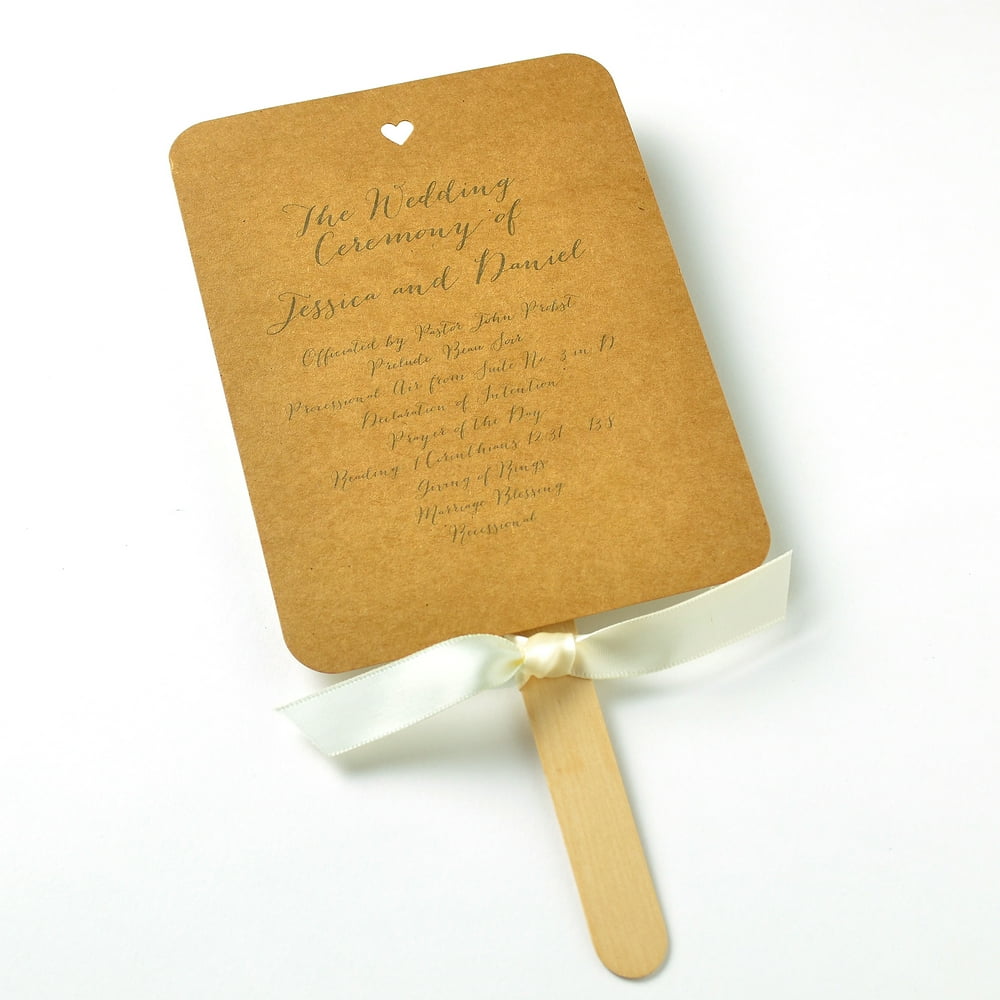 The Wedding
Ceremony of
Jessica and Daniel
Officiated by Pastor John Probst
Prelude Beau Soir
Processional Air from Suite No. 3 in D
Declaration of Intention
Prayer of the Day
Reading 1 Corinthians 12:31 - 13:8
Giving of Rings
Marriage Blessing
Recessional